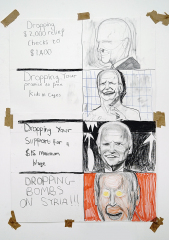 Dropping
$2,000 relief
checks to
$1,400
Dropping Your
promise to free
Kids in Cages
Dropping Your
Support For a
$15 Minimum
Wage
DROPPING
BOMBS
ON SYRIA!!!